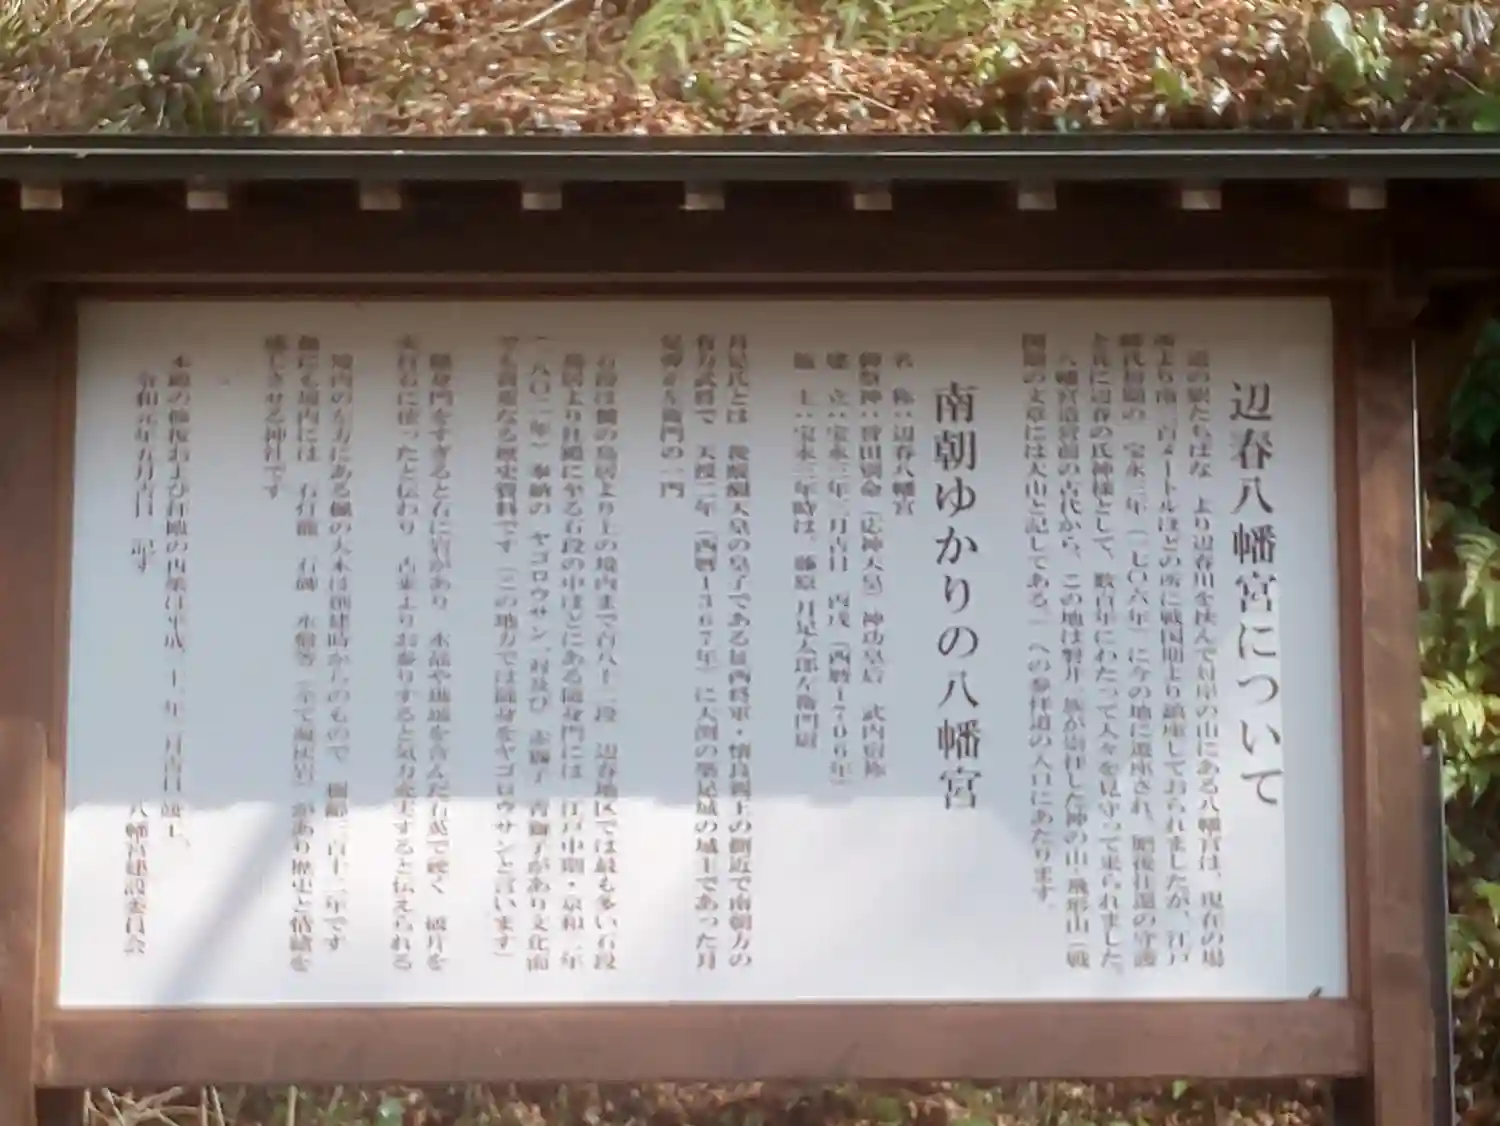 辺春八幡宮について
道の駅たちばな より辺春川を挟んで対岸の山にある八幡宮は、現在の場
所より南二百メートルほどの所に戦国期より鎮座しておられましたが、江戸
時代初頭の 宝永三年(一七〇六年)に今の地に遷座され、肥後往還の守護
と共に辺春の氏神様として、数百年にわたって人々を見守って来られました。
八幡宮造営前の古代から、この地は 族が崇拝した神の山・飛形山(戦
国期の文章には大山と記してある。)への参拝道の入口にあたります。
南朝ゆかりの八幡宮
名 称:辺春八幡宮
御祭神:誉田別命(応神天皇)神功皇后 武内宿祢
建 立:宝永三年三月吉日 丙戌(西暦1706年)
願 主:宝永三年時は、藤原 月足太郎左衛門尉
月足氏とは 後醍醐天皇の皇子である征西将軍・懐良親王の側近で南朝方の
有力武将で 天授二年(西暦1367年)に大渕の築足城の城主であった月
足 左衛門の一門
石段は麓の鳥居より上の境内まで百八十 段 辺春地区では最も多い石段
鳥居より社殿に至る石段の中ほどにある随身門には 江戸中期・享和二年
(一八〇二年)奉納の ヤゴロウサン一対及び 赤獅子 青獅子があり文化面
でも貴重なる歴史資料です(この地方では随身をヤゴロウサンと言います)
随身門をすぎると右に岩があり 水晶や 瑞を含んだ石英で硬く 彼岸を
来石に使ったと伝わり 古来よりお参りすると気力充実すると伝えられる
境内の左方にある楓の大木は創建時からのもので 樹齢三百十二年です
他にも境内には 石灯籠 石碑 水盤等(全て凝灰岩)があり歴史と情緒を
感じさせる神社です
本殿の修復および拝殿の再築は平成 十 年 月吉日竣工。
令和元年五月吉日 記す
八幡宮建設委員会